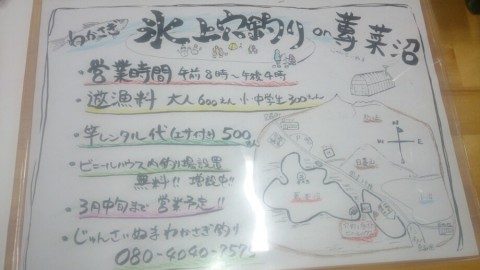 わかさぎ 氷上穴釣り on 蓴菜沼
・営業時間 午前8時〜午後4時
・遊漁料 大人600えん 小中学生300えん
・竿レンタル代(エサ付) 500えん
・ビニールハウス内釣り場設置
無料!! 増設中!!
・3月中旬まで営業予定!!
・じゅんさいぬまわかさぎ釣り
080-4040-7575